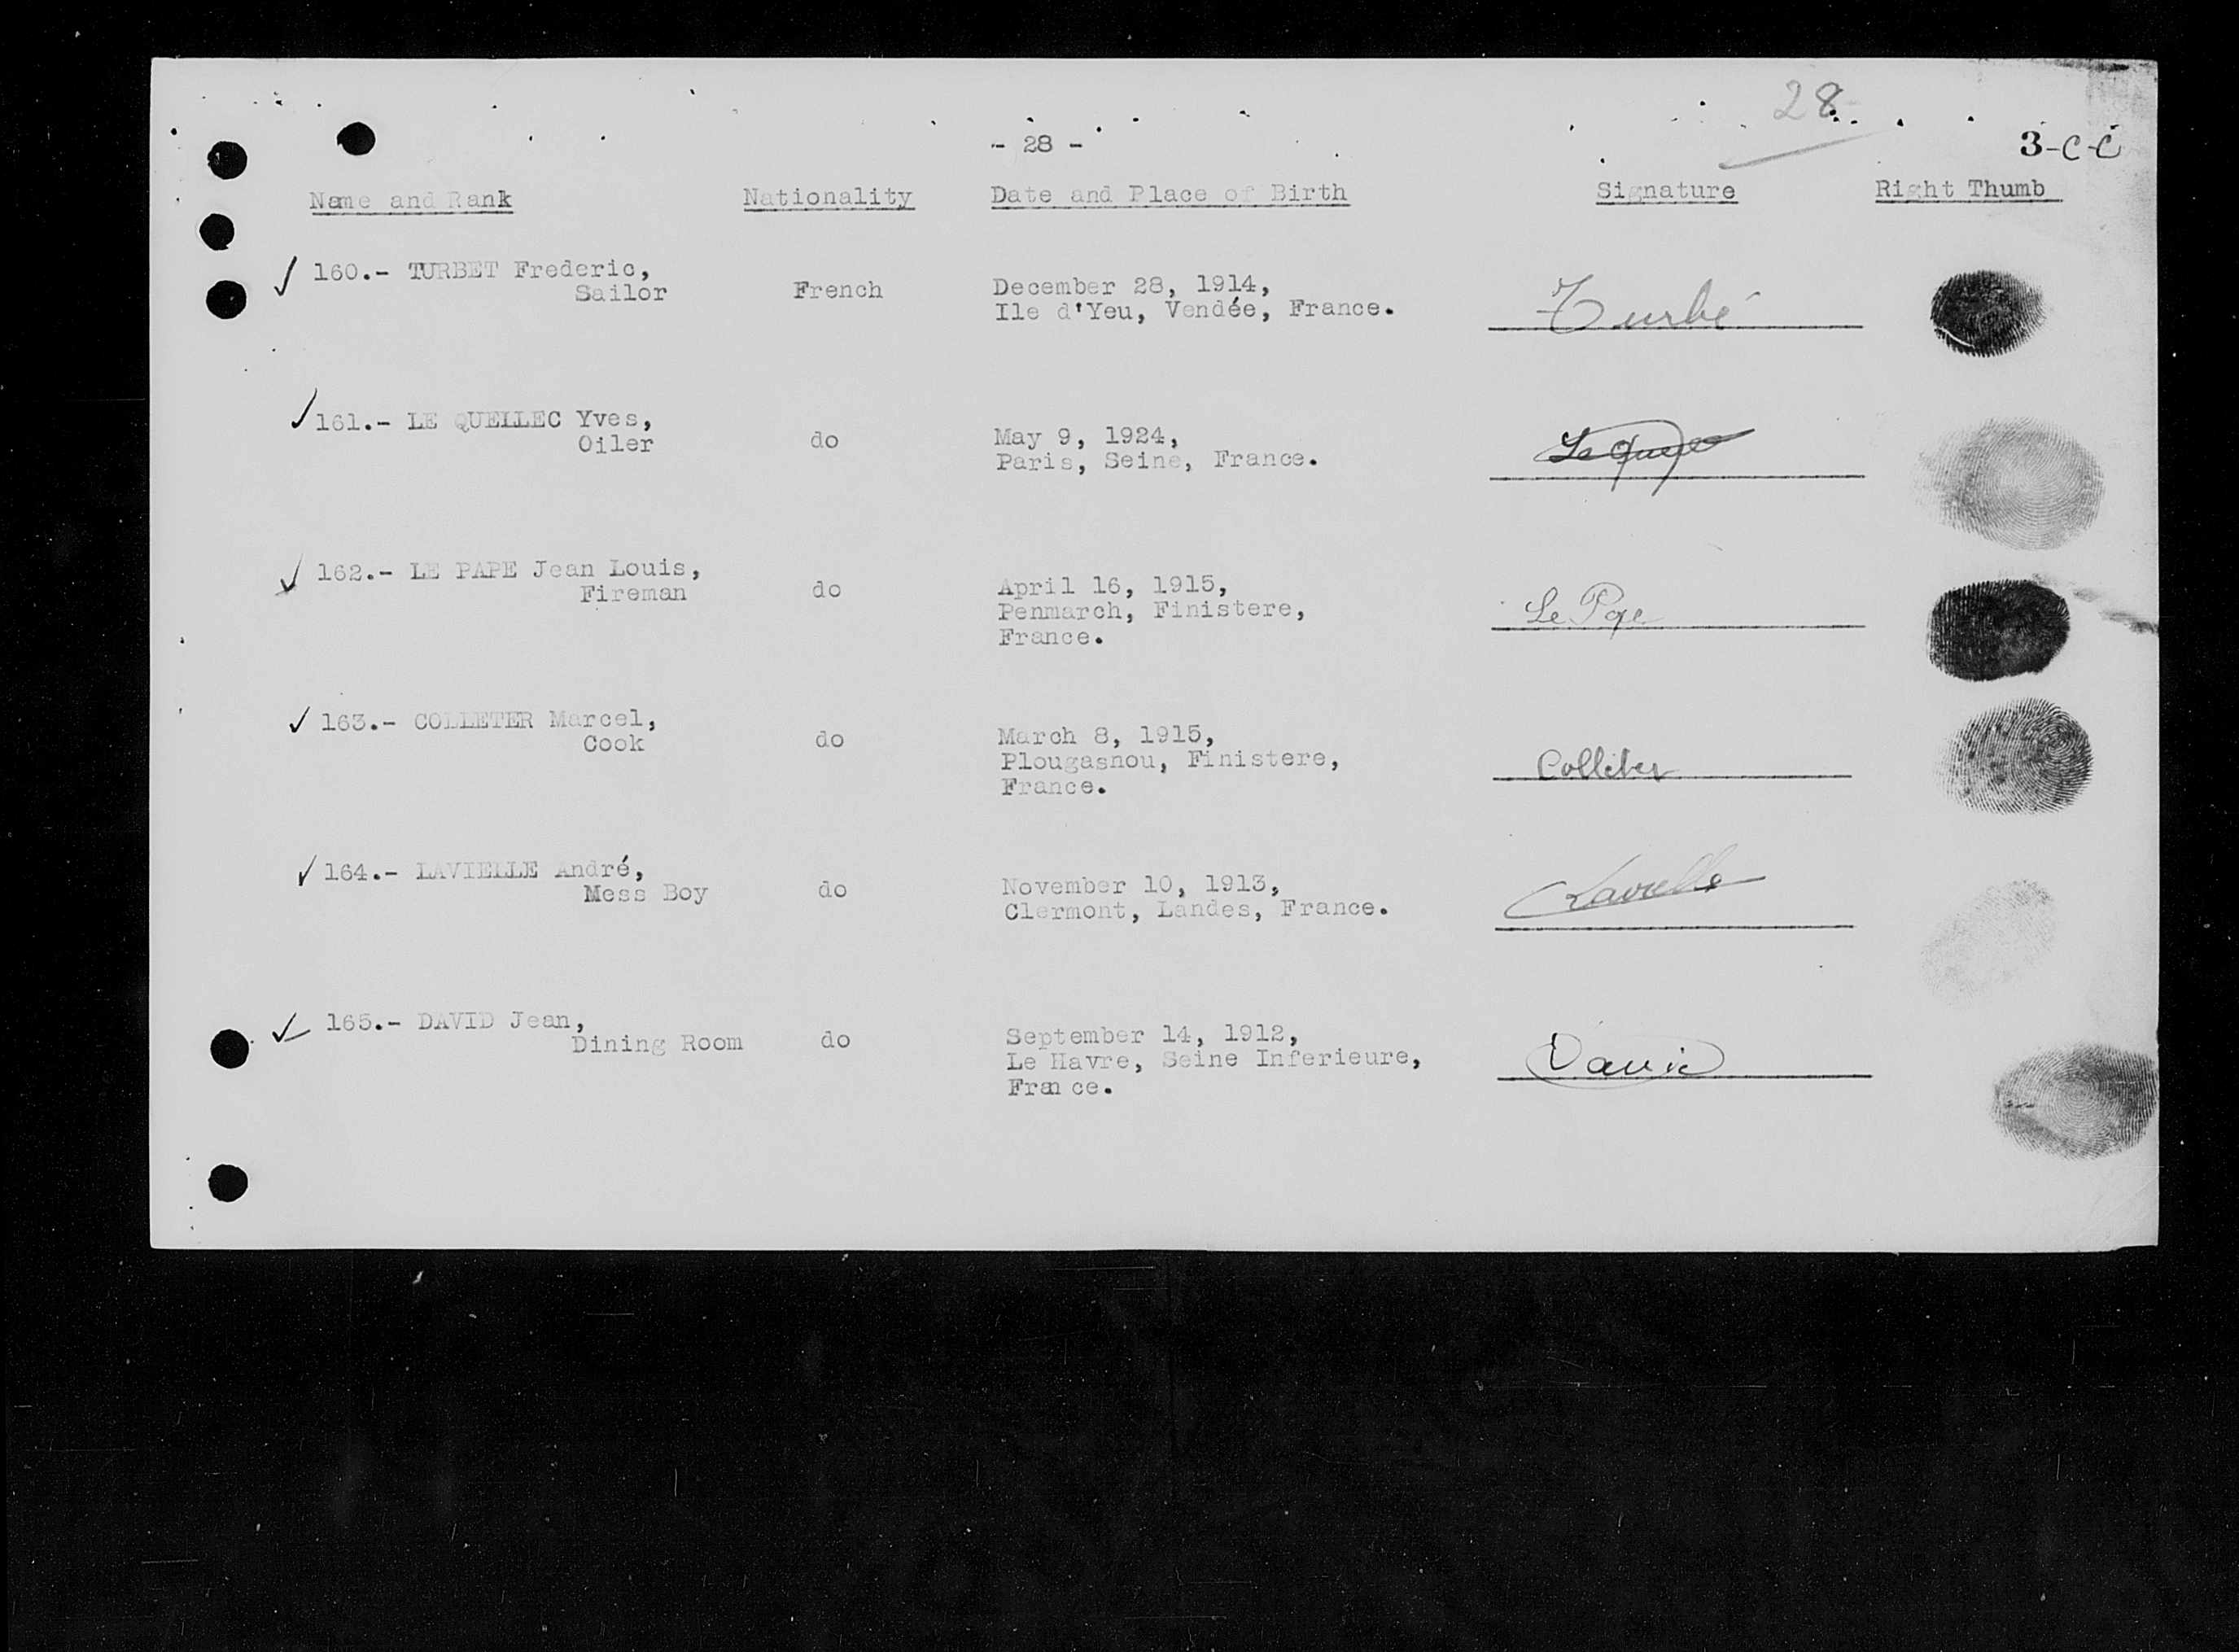 28
- 28 -
3-C-C
Name and Rank Nationality Date and Place of Birth Signature Right Thumb
160.- TURBET Frederic,
Sailor French December 28, 1914,
Ile d'Yeu, Vendée, France. Turbé
161.- LE QUELLEC Yves,
Oiler do May 9, 1924,
Paris, Seine, France.
162.- LE PAPE Jean Louis,
Fireman do April 16, 1915,
Penmarch, Finistere, Le Pape
France.
163.- COLLETER Marcel,
Cook do March 8, 1915,
Plougasnou, Finistere, Colleter
France.
164.- LAVIELLE André,
Mess Boy do November 10, 1913, Lavielle
Clermont, Landes, France.
165.- DAVID Jean,
Dining Room do September 14, 1912,
Le Havre, Seine Inferieure, David
Fran ce.